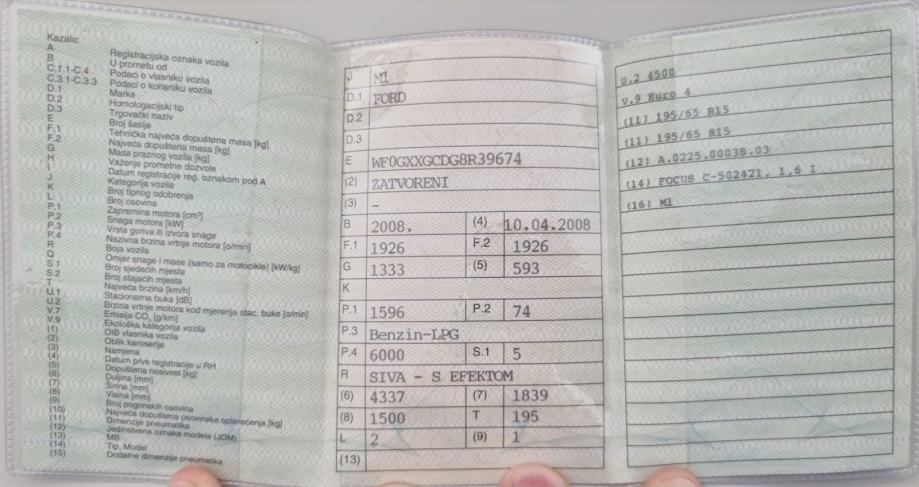 Kazalo:
A Registracijska oznaka vozila
B U prometu od
C.1.1-C.4 Podaci o vlasniku vozila
C.3.1-C.3.3 Podaci o korisniku vozila
D.1 Marka
D.2 Homologacijski tip
D.3 Trgovački naziv
E Broj šasije
F.1 Tehnička najveća dopuštena masa [kg]
F.2 Najveća dopuštena masa [kg]
G Masa praznog vozila [kg]
H Važenje prometne dozvole
I Datum registracije reg. oznakom pod A
J Kategorija vozila
K Broj tipnog odobrenja
L Broj osovina
P.1 Zapremina motora [cm³]
P.2 Snaga motora [kW]
P.3 Vrsta goriva ili izvora snage
P.4 Nazivna brzina vrtnje motora [o/min]
R Boja vozila
Q Omjer snage i mase (samo za motocikle) [kW/kg]
S.1 Broj sjedećih mjesta
S.2 Broj stajaćih mjesta
T Najveća brzina [km/h]
U.1 Stacionarna buka [dB]
U.2 Brzina vrtnje motora kod mjerenja stac. buke [o/min]
V.7 Emisija CO₂ [g/km]
V.9 Ekološka kategorija vozila
(1) OIB vlasnika vozila
(2) Oblik karoserije
(3) Namjena
(4) Datum prve registracije u RH
(5) Dopuštena nosivost [kg]
(6) Duljina [mm]
(7) Širina [mm]
(8) Visina [mm]
(9) Broj pogonskih osovina
(10) Najveća dopuštena osovinska opterećenja [kg]
(11) Dimenzije pneumatika
(12) Jedinstvena oznaka modela (JOM)
(13) MB
(14) Tip, Model
(15) Dodatne dimenzije pneumatika
J M1
D.1 FORD
D.2
D.3
E WF0GXXGCDG8R39674
(2) ZATVORENI
(3) –
B 2008. (4) 10.04.2008
F.1 1926 F.2 1926
G 1333 (5) 593
K
P.1 1596 P.2 74
P.3 Benzin-LPG
P.4 6000 S.1 5
R SIVA - S EFEKTOM
(6) 4337 (7) 1839
(8) 1500 T 195
L 2 (9) 1
(13)
U.2 4500
V.9 Euro 4
(11) 195/65 R15
(11) 195/65 R15
(12) A.0225.00038.03
(14) FOCUS C-502421, 1,6 I
(16) M1